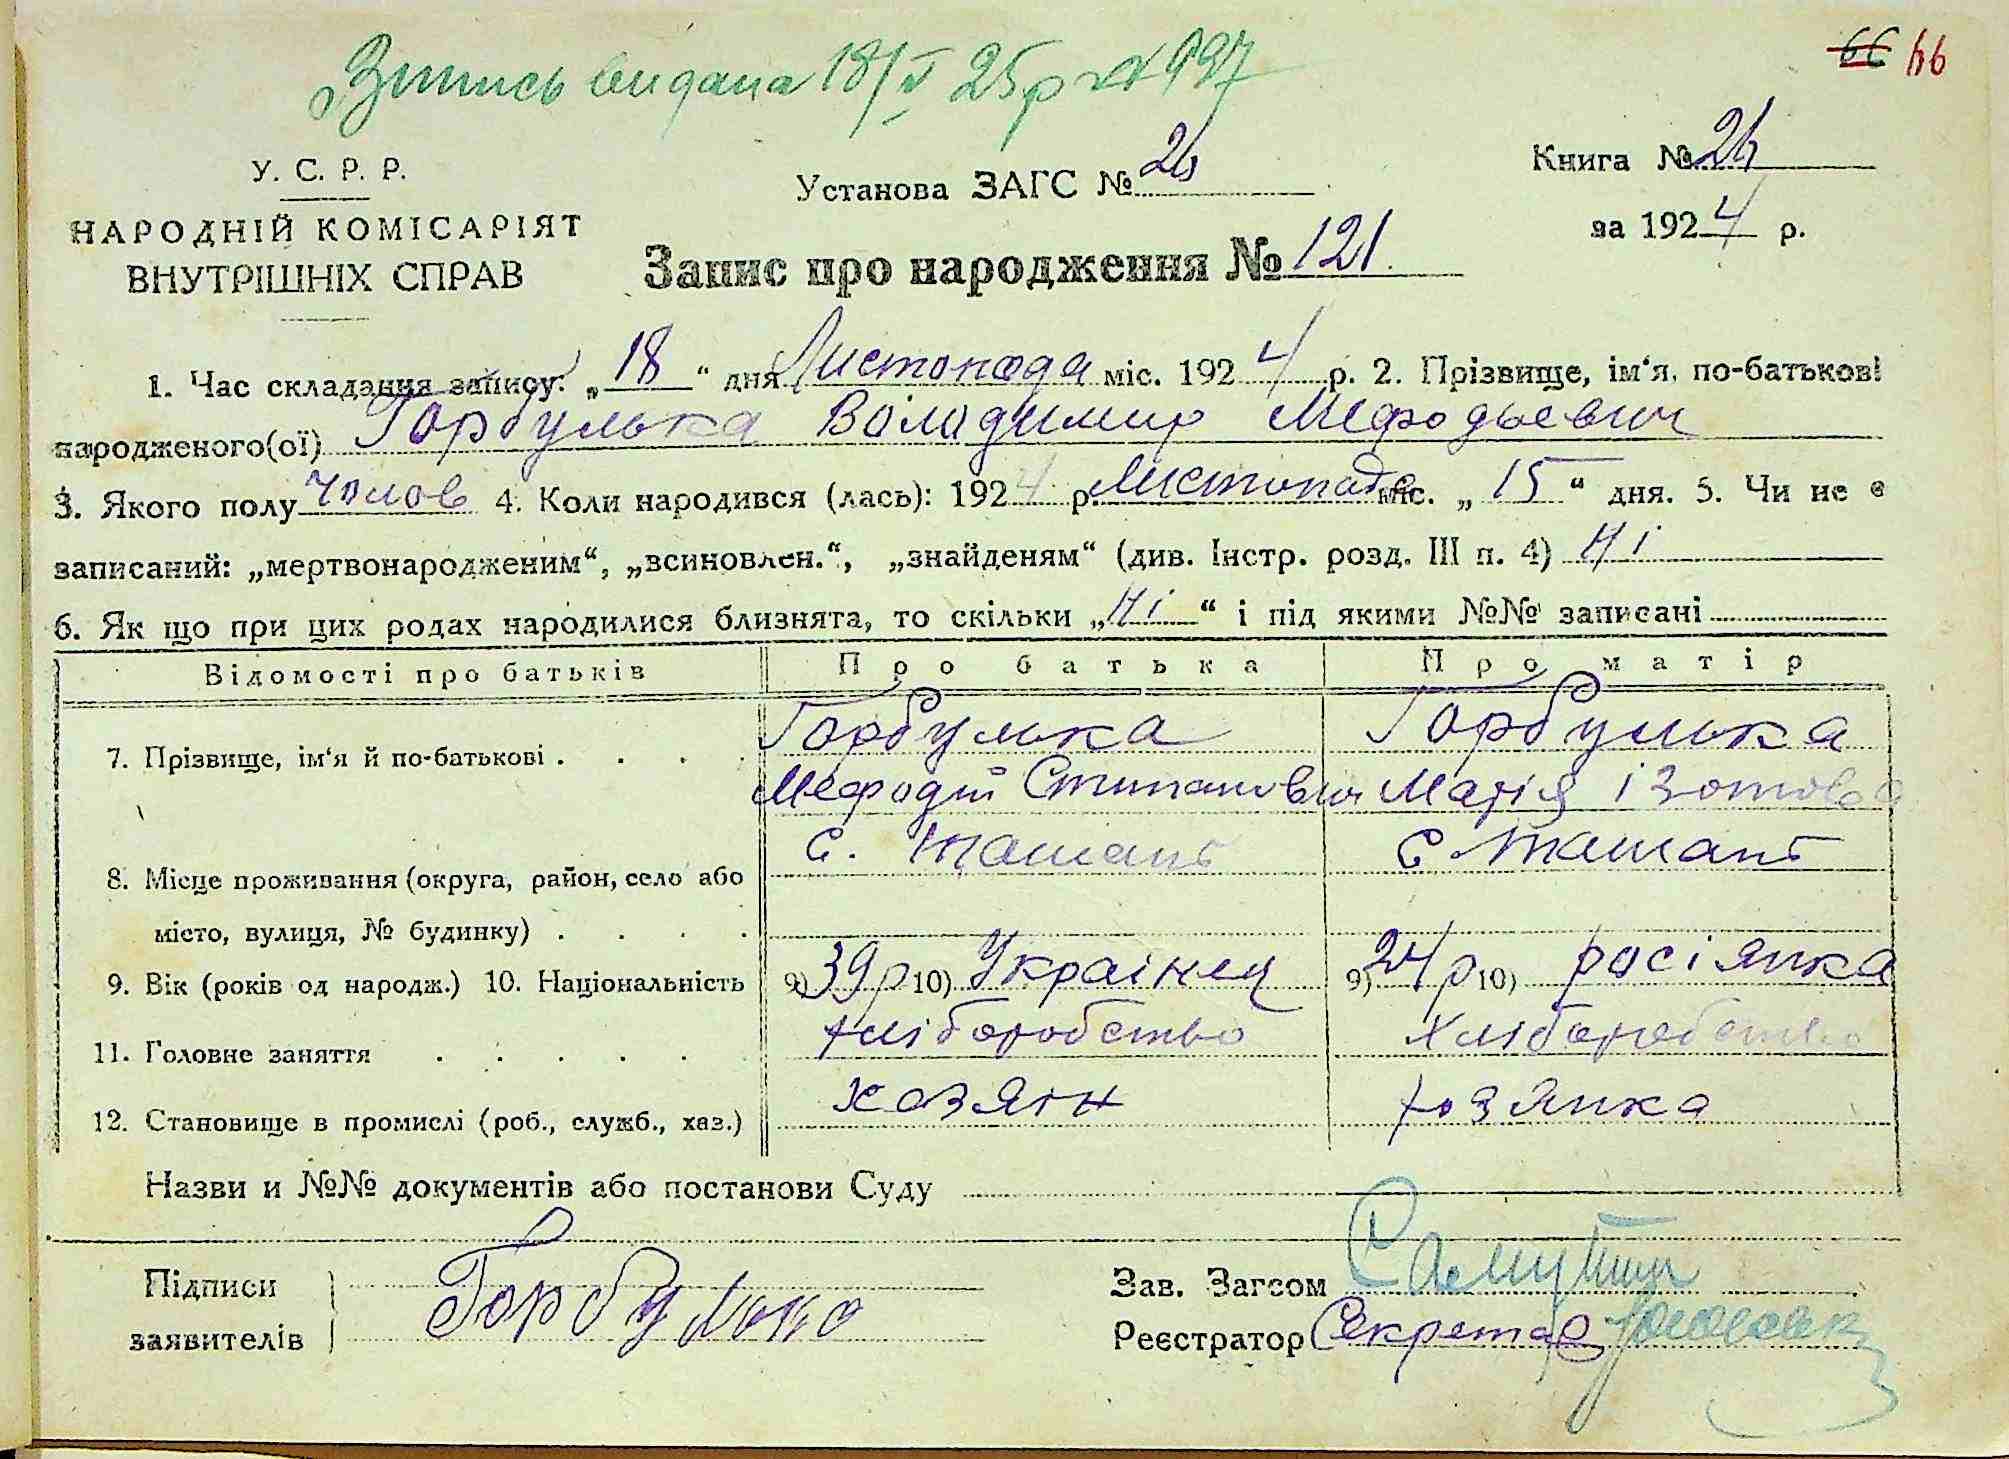 Випись видана 18/V 25р № 937
66 66
У. С. Р. Р.
НАРОДНІЙ КОМІСАРІЯТ
ВНУТРІШНІХ СПРАВ
Установа ЗАГС № 26
Книга № 26
за 1924 р.
Запис про народження № 121
1. Час складання запису: „18“ дня Листопада міс. 1924 р. 2. Прізвище, ім‘я, по-батькові
народженого(ої) Горбулька Володимир Мефодьевич
3. Якого полу чолов 4. Коли народився (лась): 1924 р. Листопада міс. „15“ дня. 5. Чи не є
записаний: „мертвонародженим“, „всиновлен.“, „знайденям“ (див. Інстр. розд. III п. 4) Ні
6. Як що при цих родах народилися близнята, то скільки „Ні“ і під якими №№ записані
Відомості про батьків Про батька Про матір
7. Прізвище, ім‘я й по-батькові . . . . Горбулька Горбулька
Мефодій Степанович Марія Ізотова
8. Місце проживання (округа, район, село або с. Ташань с Ташань
місто, вулиця, № будинку) . . . .
9. Вік (років од народж.) 10. Національність 9) 39р 10) Українец 9) 24р 10) росіянка
11. Головне заняття . . . . . . хліборобство хліборобство
12. Становище в промислі (роб., служб., хаз.) хозяїн хозянка
Назви и №№ документів або постанови Суду
Підписи
заявителів
Горбулько
Зав. Загсом
Реєстратор Секретар